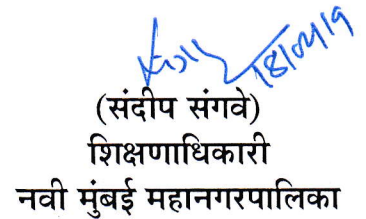 (संदीप संगवे)
शिक्षणाधिकारी
नवी मुंबई महानगरपालिका